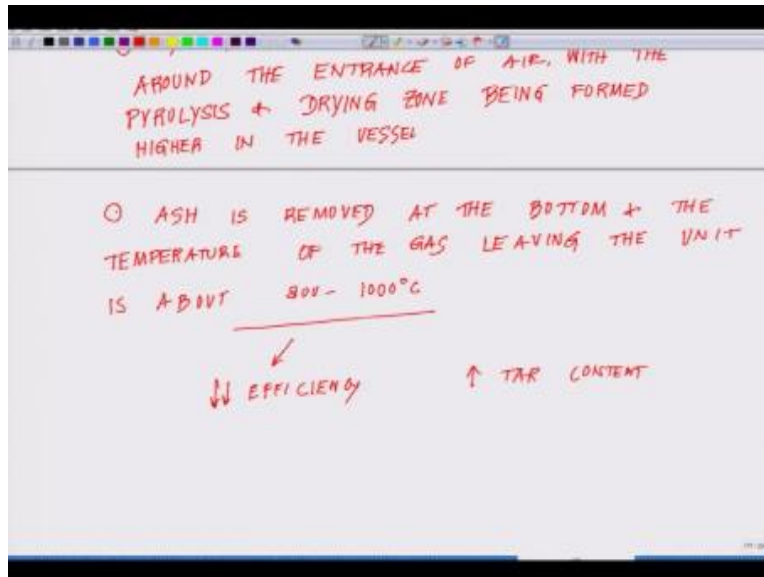 AROUND THE ENTRANCE OF AIR, WITH THE
PYROLYSIS & DRYING ZONE BEING FORMED
HIGHER IN THE VESSEL
○ ASH IS REMOVED AT THE BOTTOM & THE
TEMPERATURE OF THE GAS LEAVING THE UNIT
IS ABOUT 800- 1000°C
↓↓ EFFICIENCY ↑ TAR CONTENT